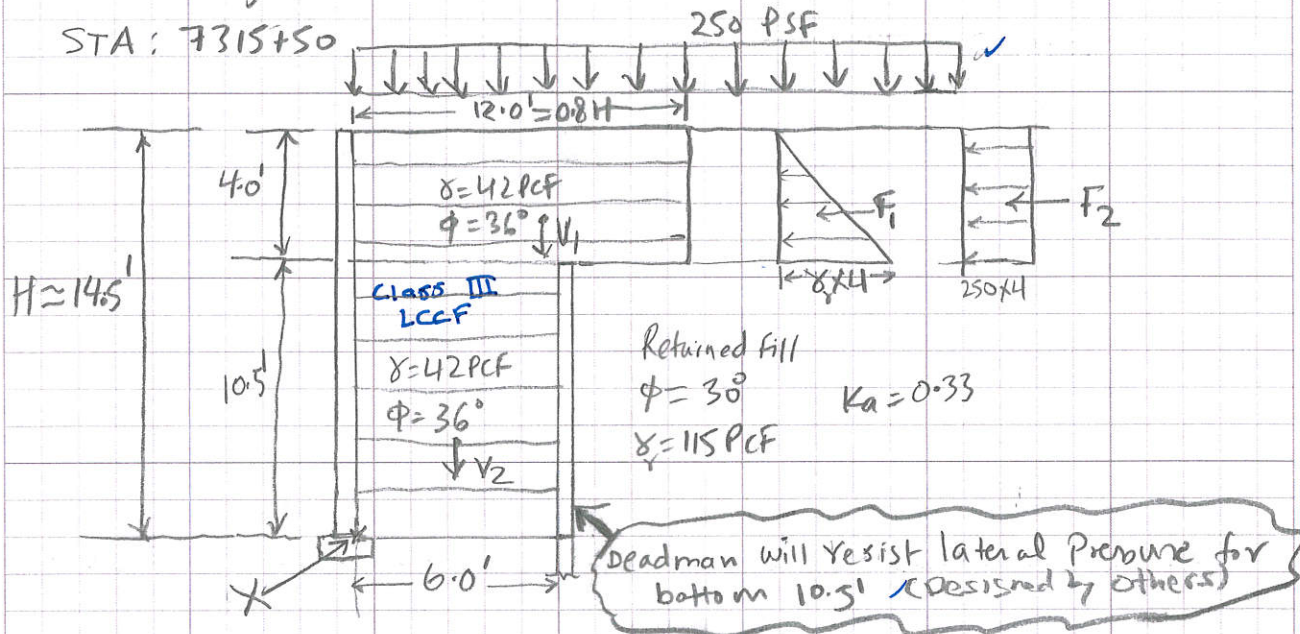 STA: 7315+50
250 PSF
12.0'=0.8H
4.0'
γ=42PCF
φ=36°
V1
F1
F2
γrX4
250X4
H≃14.5'
Class III
LCCF
10.5'
γ=42PCF
φ=36°
V2
Retained fill
φ=30°
Ka=0.33
γr=115PCF
Deadman will resist lateral Pressure for
bottom 10.5' (Designed by others)
6.0'
X